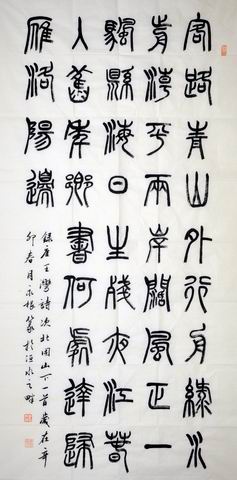 客路青山外行舟綠水
前潮平兩岸闊風正一
颿縣海日生殘夜江春
入舊年鄉書何處達歸
雁洛陽邊
錄唐王灣詩次北固山下一首歲在辛
卯春月根篆於洹水之畔